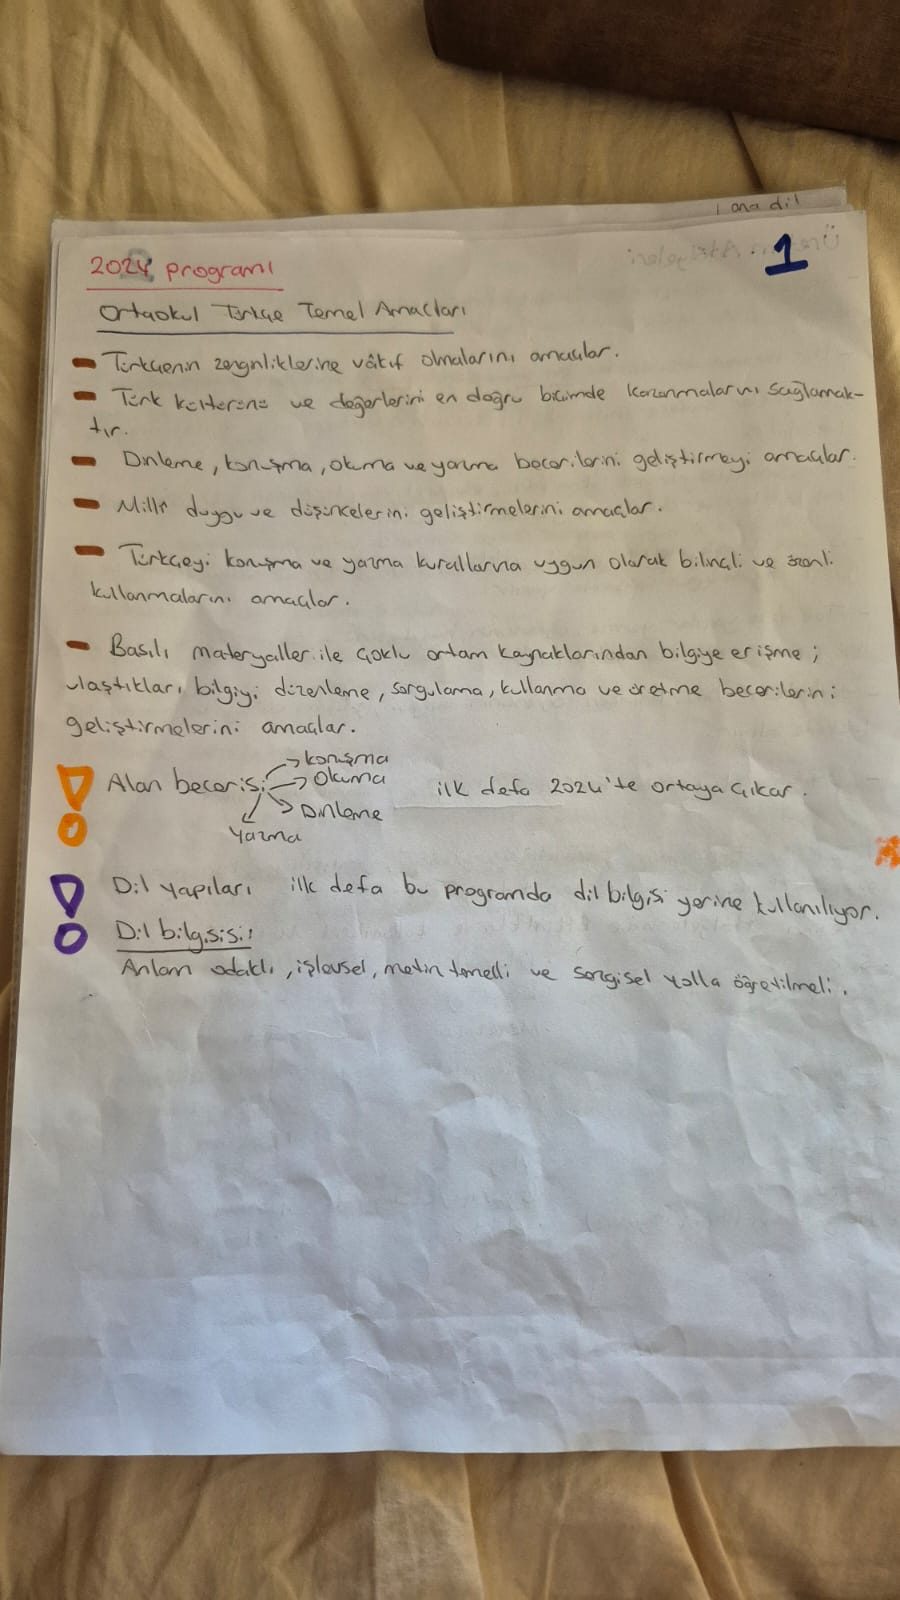 ana dil
1
2024 programı
Ortaokul Türkçe Temel Amaçları
- Türkçenin zenginliklerine vâkıf olmalarını amaçlar.
- Türk kültürünü ve değerlerini en doğru biçimde kazanmalarını sağlamak-
tır.
- Dinleme, konuşma, okuma ve yazma becerilerini geliştirmeyi amaçlar.
- Millî duygu ve düşüncelerini geliştirmelerini amaçlar.
- Türkçeyi konuşma ve yazma kurallarına uygun olarak bilinçli ve özenli
kullanmalarını amaçlar.
- Basılı materyaller ile çoklu ortam kaynaklarından bilgiye erişme;
ulaştıkları bilgiyi düzenleme, sorgulama, kullanma ve üretme becerilerini
geliştirmelerini amaçlar.
Alan becerisi → konuşma
→ Okuma
→ Dinleme
Yazma
ilk defa 2024'te ortaya çıkar.
Dil yapıları ilk defa bu programda dil bilgisi yerine kullanılıyor.
Dil bilgisi!
Anlam odaklı, işlevsel, metin temelli ve sezgisel yolla öğretilmeli.